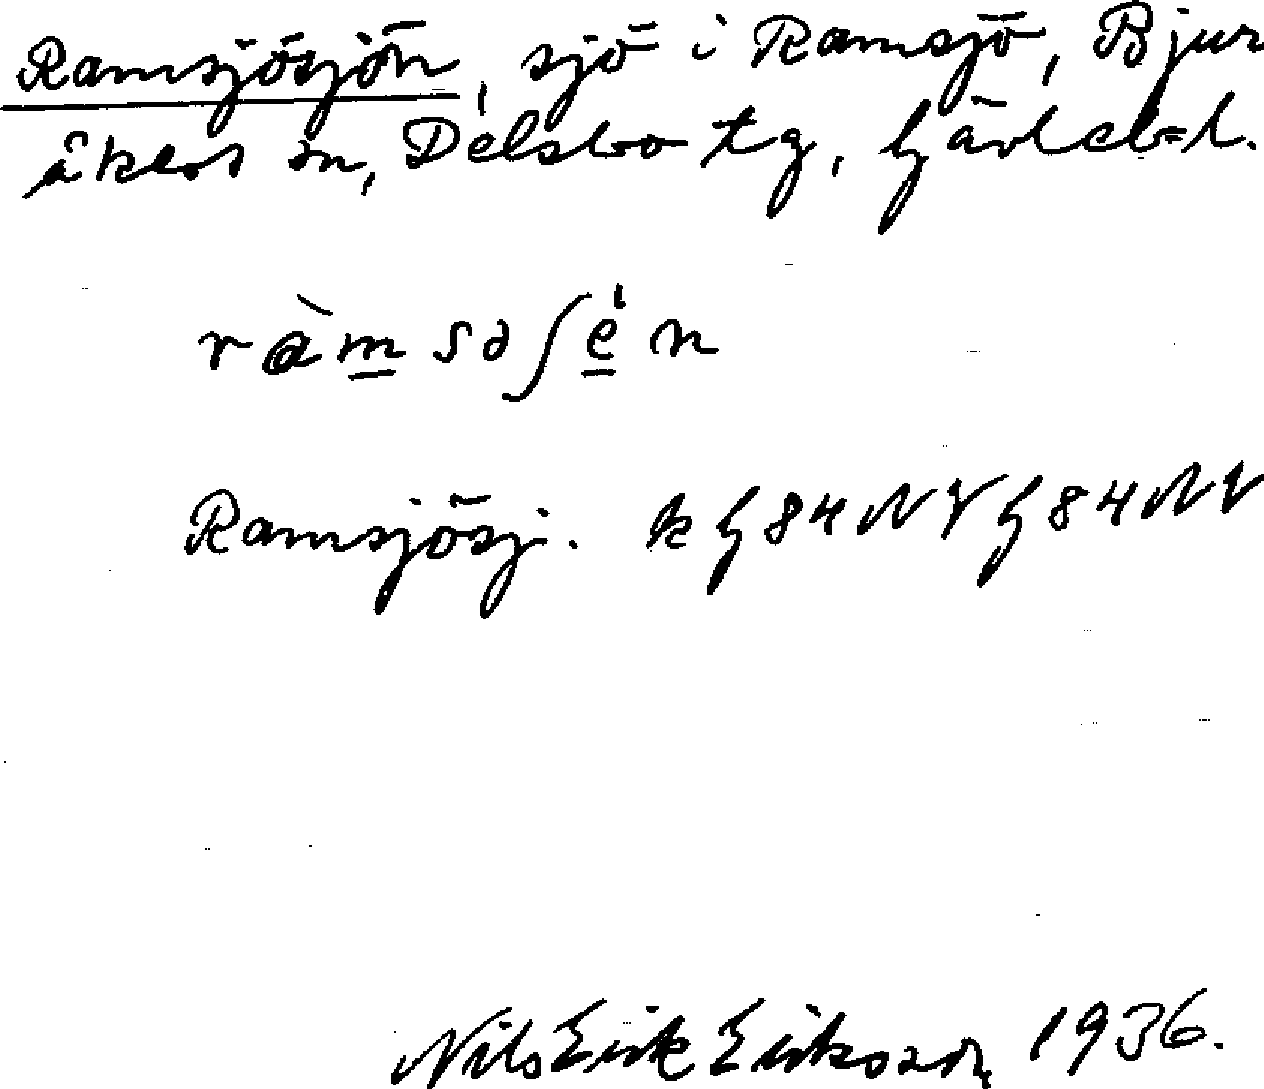 Ramsjösjön, sjö i Ramsjö, Bjur
åkers sn, Delsbo tg, Gävleb=l.
ràmsəʃén
Ramsjösj. k G84NV G84NV
Nils Erik Eriksson 1936.